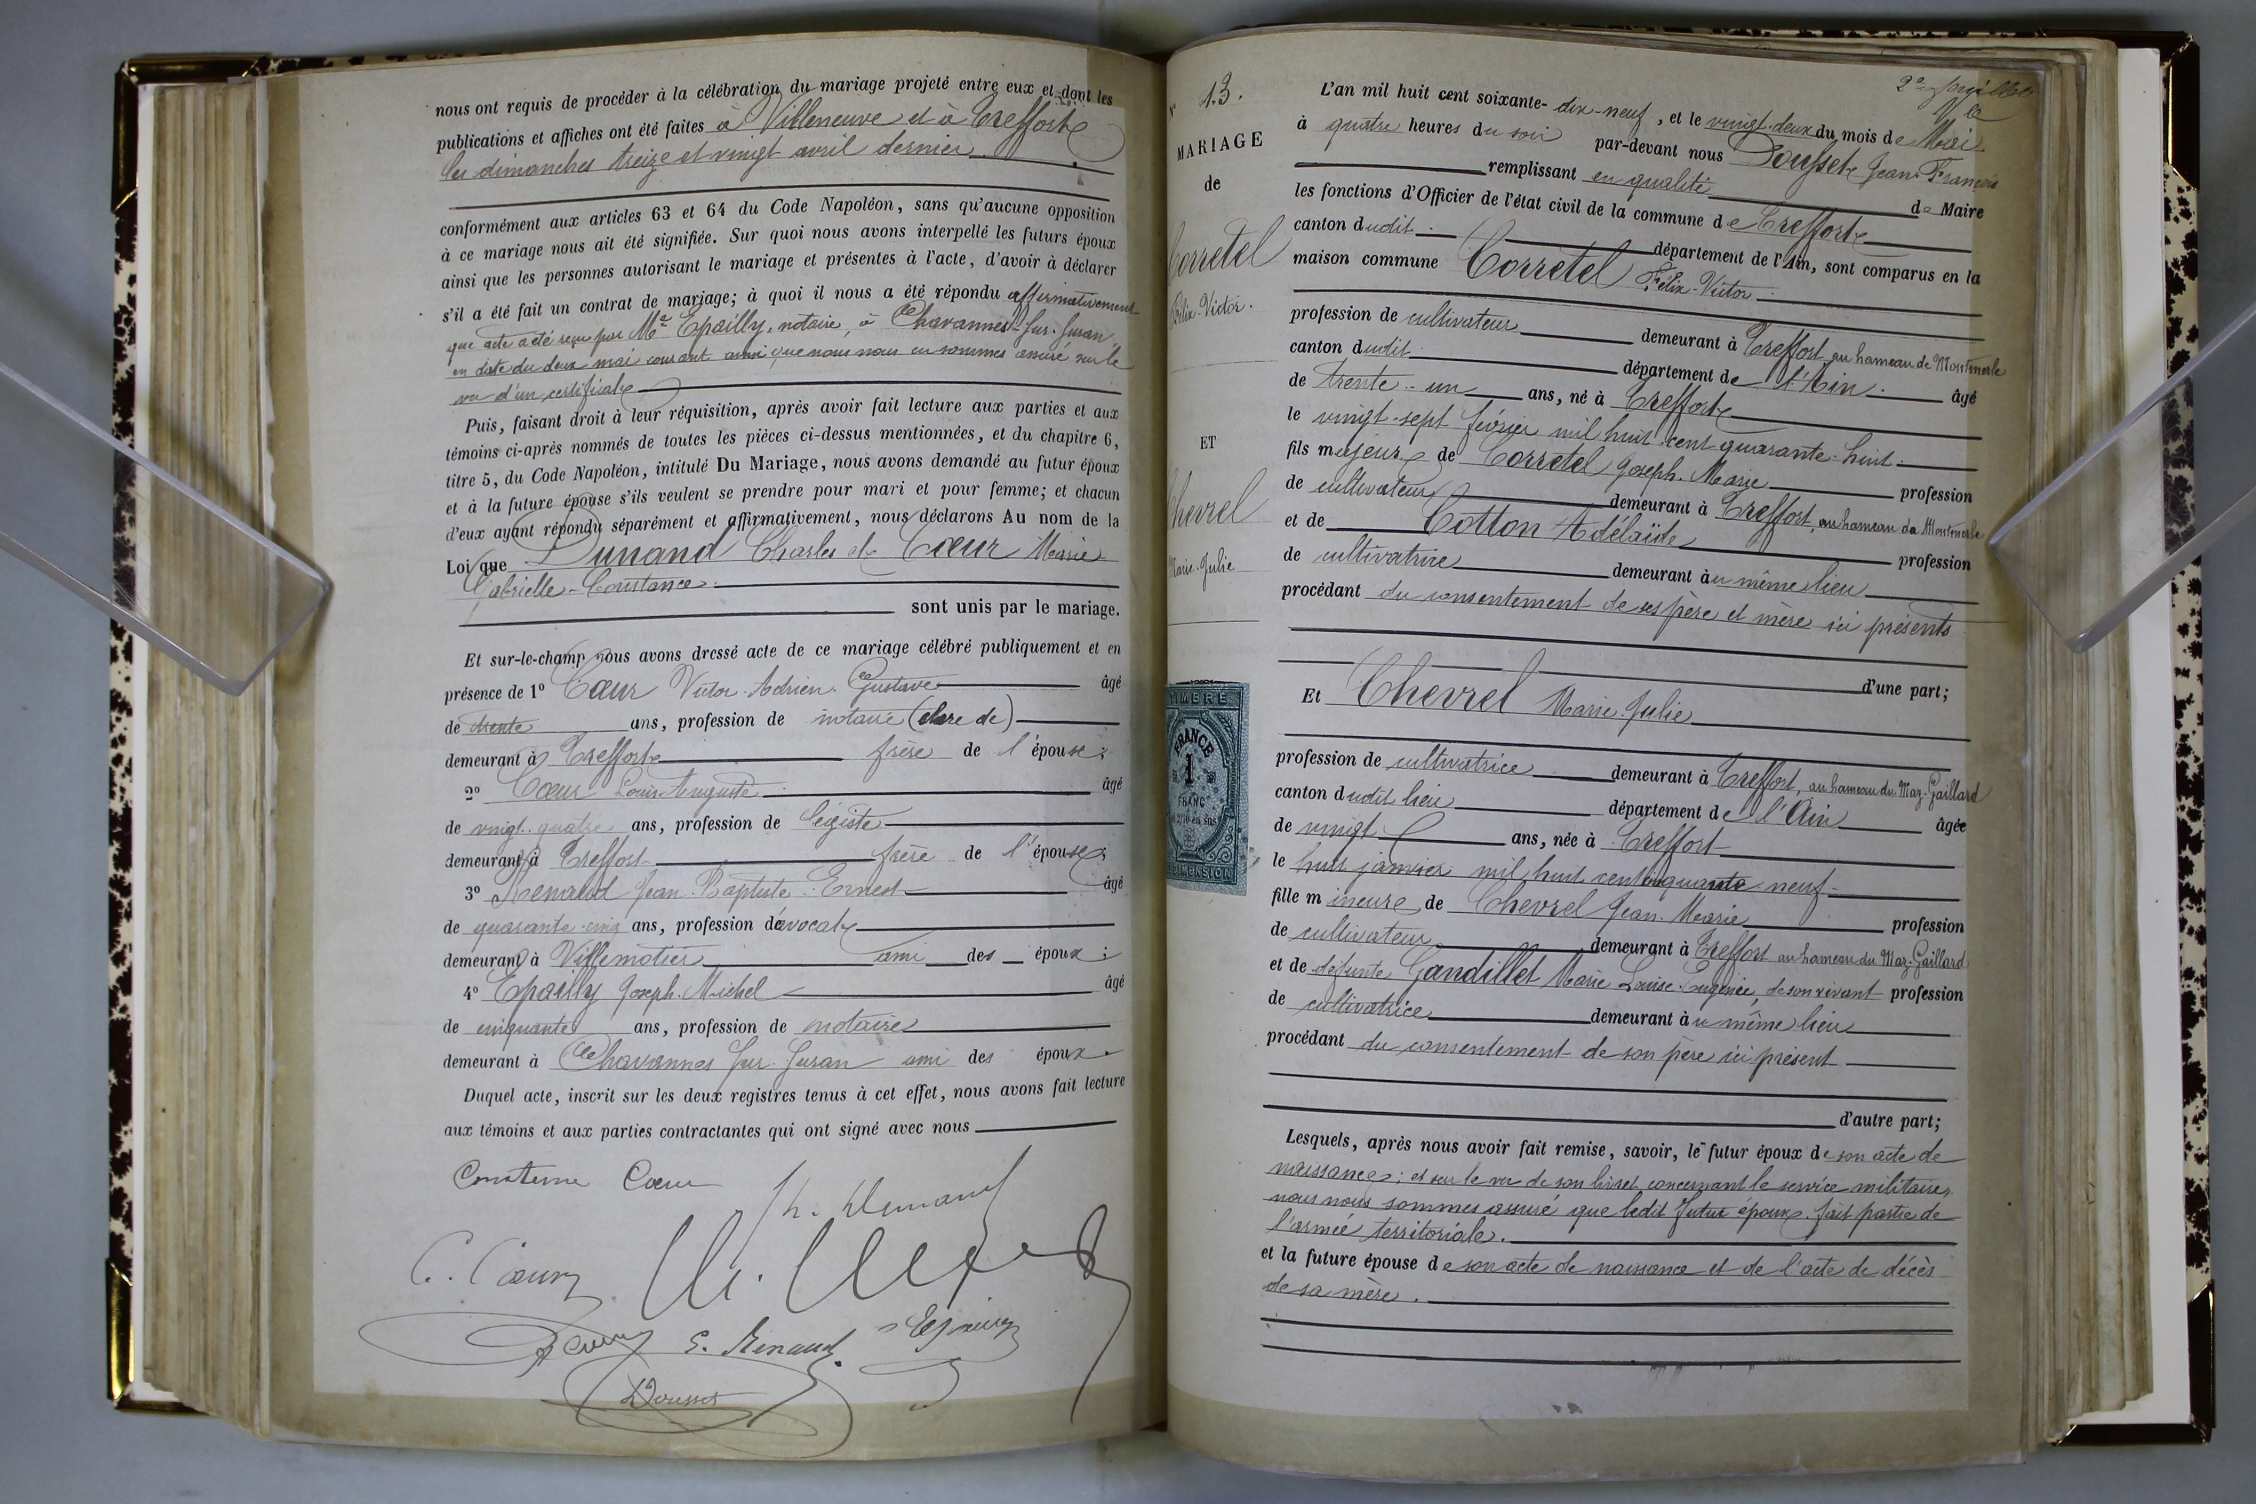 nous ont requis de procéder à la célébration du mariage projeté entre eux et dont les
publications et affiches ont été faites à Villeneuve et à Treffort
les dimanches treize et vingt avril dernier
conformément aux articles 63 et 64 du Code Napoléon, sans qu'aucune opposition
à ce mariage nous ait été signifiée. Sur quoi nous avons interpellé les futurs époux
ainsi que les personnes autorisant le mariage et présentes à l'acte, d'avoir à déclarer
s'il a été fait un contrat de mariage; à quoi il nous a été répondu affirmativement
que acte a été reçu par Me Epailly, notaire, à Chavannes-sur-Suran
en date du deux mai courant ainsi que nous nous en sommes assuré sur le
vu d'un certificat
Puis, faisant droit à leur réquisition, après avoir fait lecture aux parties et aux
témoins ci-après nommés de toutes les pièces ci-dessus mentionnées, et du chapitre 6,
titre 5, du Code Napoléon, intitulé Du Mariage, nous avons demandé au futur époux
et à la future épouse s'ils veulent se prendre pour mari et pour femme; et chacun
d'eux ayant répondu séparément et affirmativement, nous déclarons Au nom de la
Loi que Dunand Charles et Cœur Marie
Gabrielle-Constance
sont unis par le mariage.
Et sur-le-champ nous avons dressé acte de ce mariage célébré publiquement et en
présence de 1° Cœur Victor-Adrien-Gustave âgé
de trente ans, profession de notaire (clerc de)
demeurant à Treffort frère de l'épouse;
2° Cœur Louis-Auguste âgé
de vingt-quatre ans, profession de légiste
demeurant à Treffort frère de l'épouse;
3° Renaud Jean-Baptiste-Ernest âgé
de quarante-cinq ans, profession d'avocat
demeurant à Villemotier ami des époux;
4° Epailly Joseph-Michel âgé
de cinquante ans, profession de notaire
demeurant à Chavannes-sur-Suran ami des époux.
Duquel acte, inscrit sur les deux registres tenus à cet effet, nous avons fait lecture
aux témoins et aux parties contractantes qui ont signé avec nous
Constance Cœur
Ch. Dunand
C. Cœur
E. Renaud
Epailly
Dousset
2e feuillet
N° 13.
MARIAGE
de
Corretel
Félix-Victor.
ET
Chevrel
Marie-Julie
TIMBRE
FRANCE
1
FRANC
DIMENSION
L'an mil huit cent soixante-dix-neuf, et le vingt-deux du mois de Mai
à quatre heures du soir par-devant nous Dousset Jean-François
remplissant en qualité de Maire
les fonctions d'Officier de l'état civil de la commune de Treffort
canton dudit département de l'Ain, sont comparus en la
maison commune Corretel Félix-Victor
profession de cultivateur demeurant à Treffort, au hameau de Montmerle
canton dudit département de l'Ain âgé
de trente-un ans, né à Treffort
le vingt-sept février mil huit cent quarante-huit
fils majeur de Corretel Joseph-Marie profession
de cultivateur demeurant à Treffort, au hameau de Montmerle
et de Cotton Adélaïde profession
de cultivatrice demeurant au même lieu
procédant du consentement de ses père et mère ici présents
d'une part;
Et Chevrel Marie-Julie
profession de cultivatrice demeurant à Treffort, au hameau du Maz-Gaillard
canton dudit lieu département de l'Ain âgée
de vingt ans, née à Treffort
le huit janvier mil huit cent cinquante neuf
fille mineure de Chevrel Jean-Marie profession
de cultivateur demeurant à Treffort au hameau du Maz-Gaillard
et de défunte Gandillet Marie-Louise-Eugénie, de son vivant profession
de cultivatrice demeurant au même lieu
procédant du consentement de son père ici présent
d'autre part;
Lesquels, après nous avoir fait remise, savoir, le futur époux de son acte de
naissance; et sur le vu de son livret concernant le service militaire
nous nous sommes assuré que ledit futur époux fait partie de
l'armée territoriale.
et la future épouse de son acte de naissance et de l'acte de décès
de sa mère.